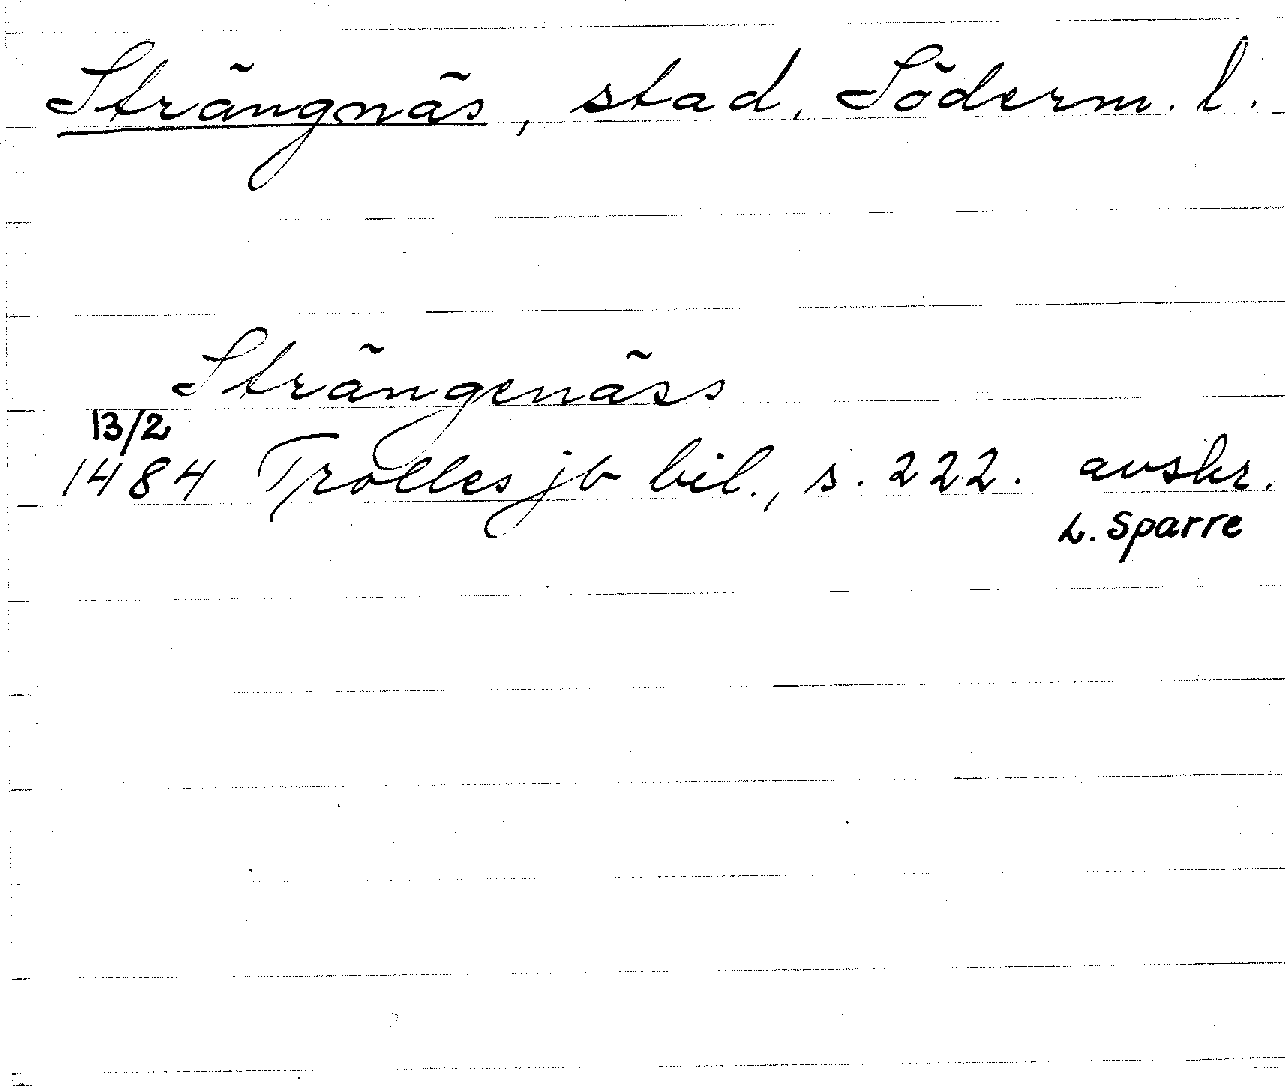 Strängnäs, stad, Söderm. l.
Strängenäss
13/2
1484 Trolles jb bil., s. 222. avskr.
L. Sparre